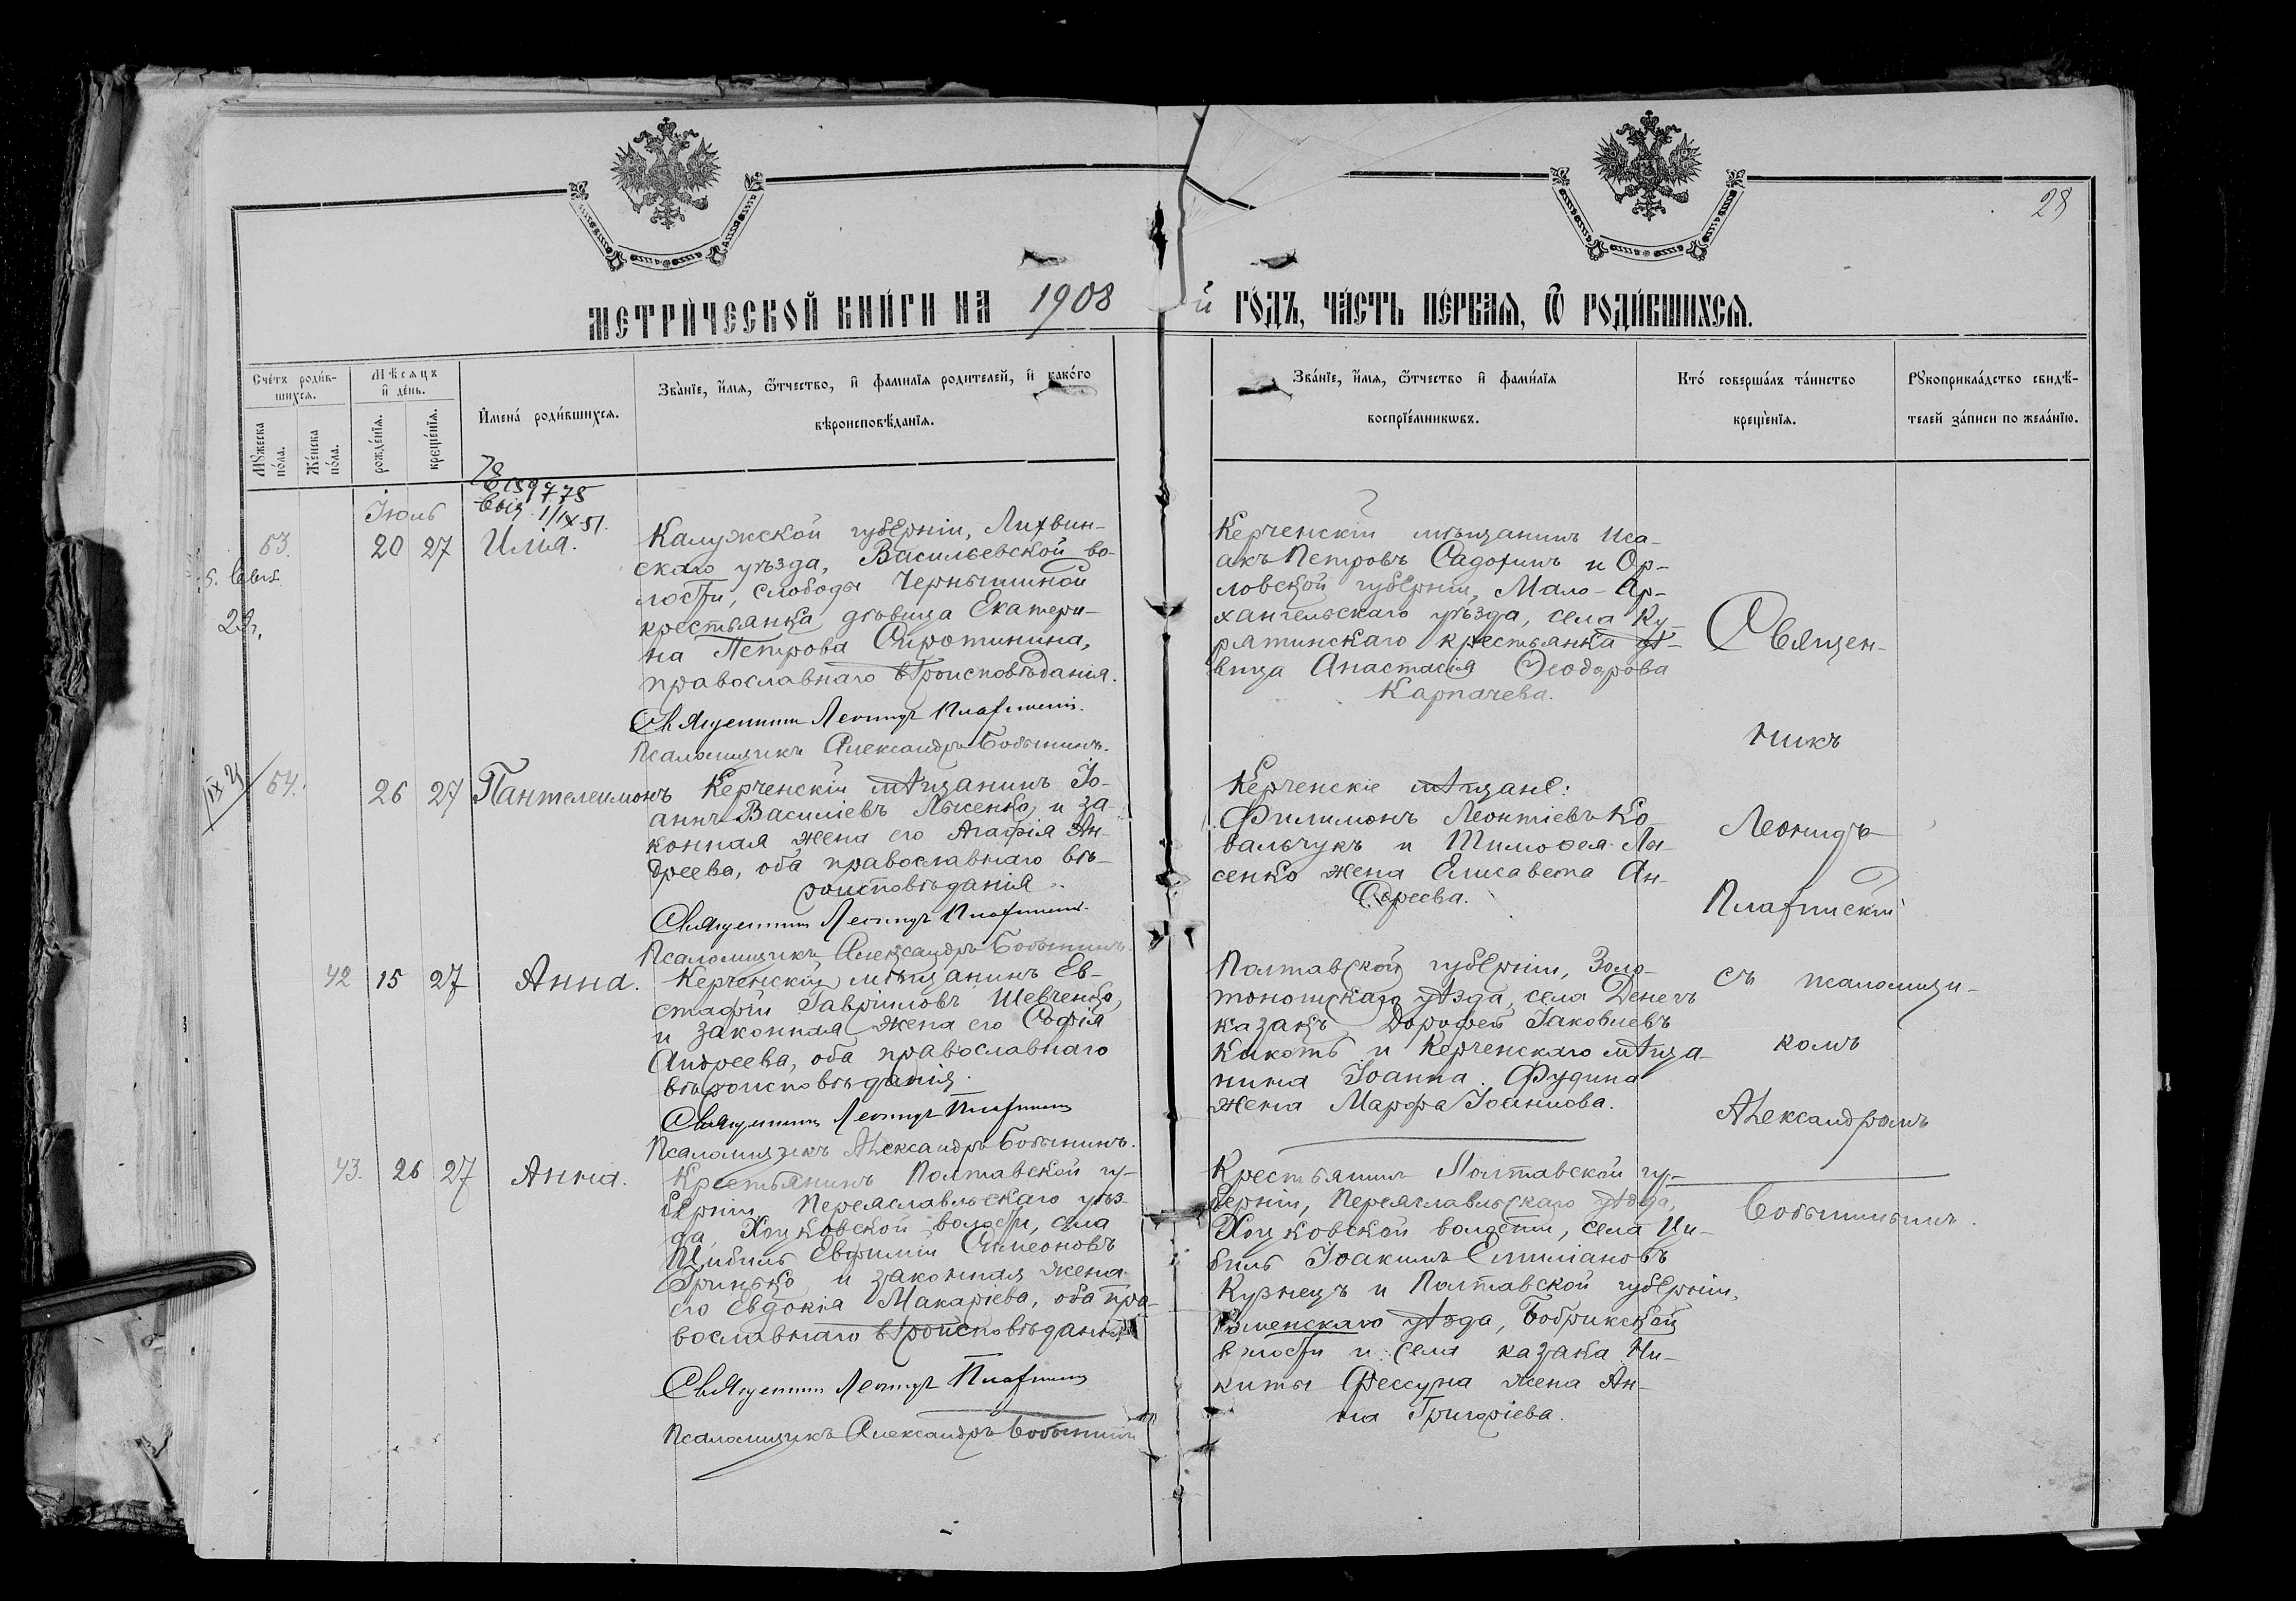 28
МЕТРИЧЕСКОЙ КНИГИ НА 1908 й ГОДЪ, ЧАСТЬ ПЕРВАЯ, Ѿ РОДИВШИХСЯ.
Счетъ родив-
шихся.
Мꙋжеска
пола.
Женска
пола.
Мѣсяцъ
и день.
рожденїя.
крещенїя.
Имена родившихся.
Званїе, имя, ѿчество, и фамилїя родителей, и какого
вѣроисповѣданїя.
Званїе, имя, ѿчество и фамилїя
воспрїемникѡвъ.
Кто совершалъ таинство
крещенїя.
Рꙋкоприкладство свидѣ-
телей записи по желанїю.
Іюль
1/IX 51.
53.
20 27 Илія.
Калужской губерніи, Лихвин-
скаго уѣзда, Васильевской во-
лости, слободы Чернышиной
крестьянка дѣвица Екатери-
на Петрова Сиротинина,
православнаго вѣроисповѣданія.
Священникъ Леонидъ
Псаломщикъ Александръ Бобынинъ.
Керченскій мѣщанинъ Иса-
акъ Петровъ Садохинъ и Ор-
ловской губерніи, Мало-Ар-
хангельскаго уѣзда, села Ку-
рятинскаго крестьянка дѣ-
вица Анастасія Ѳеодорова
Карпачева.
54.
26 27 Пантелеимонъ
Керченскій мѣщанинъ Іо-
аннъ Василіевъ Лысенко и за-
конная жена его Агафія Ан-
дреева, оба православнаго вѣ-
роисповѣданія.
Священникъ Леонидъ
Псаломщикъ Александръ Бобынинъ
Керченскіе мѣщане:
Филимонъ Леонтіевъ Ко-
вальчукъ и Тимоѳея Лы-
сенко жена Елисавета Ан-
дреева.
42 15 27 Анна.
Керченскій мѣщанинъ Ев-
стафій Гавріиловъ Шевченко,
и законная жена его Софія
Андреева, оба православнаго
вѣроисповѣданія.
Священникъ Леонидъ
Псаломщикъ Александръ Бобынинъ.
Полтавской губерніи, Золо-
тоношскаго уѣзда, села Денегъ
казакъ Дорофей Іаковлевъ
Кикоть и Керченскаго мѣща-
нина Іоанна Фудина
жена Марфа Іоаннова.
43. 26 27 Анна.
Крестьянинъ Полтавской гу-
берніи, Переяславльскаго уѣз-
да, Хоцковской волости, села
Цибиль Евфимій Симеоновъ
Гринько и законная жена
его Евдокія Макаріева, оба пра-
вославнаго вѣроисповѣданія
Священникъ Леонидъ
Псаломщикъ Александръ Бобынинъ
Крестьянинъ Полтавской гу-
берніи, Переяславльскаго уѣзда,
Хоцковской волости, села Ци-
биль Іоакимъ Емиліановъ
Кузнецъ и Полтавской губерніи,
Роменскаго уѣзда, Бобрикской
волости и села казака Ни-
киты Фессуна жена Ан-
на Григоріева.
Священ-
никъ
Леонидъ
съ псаломщи-
комъ
Александромъ
Бобынинымъ.